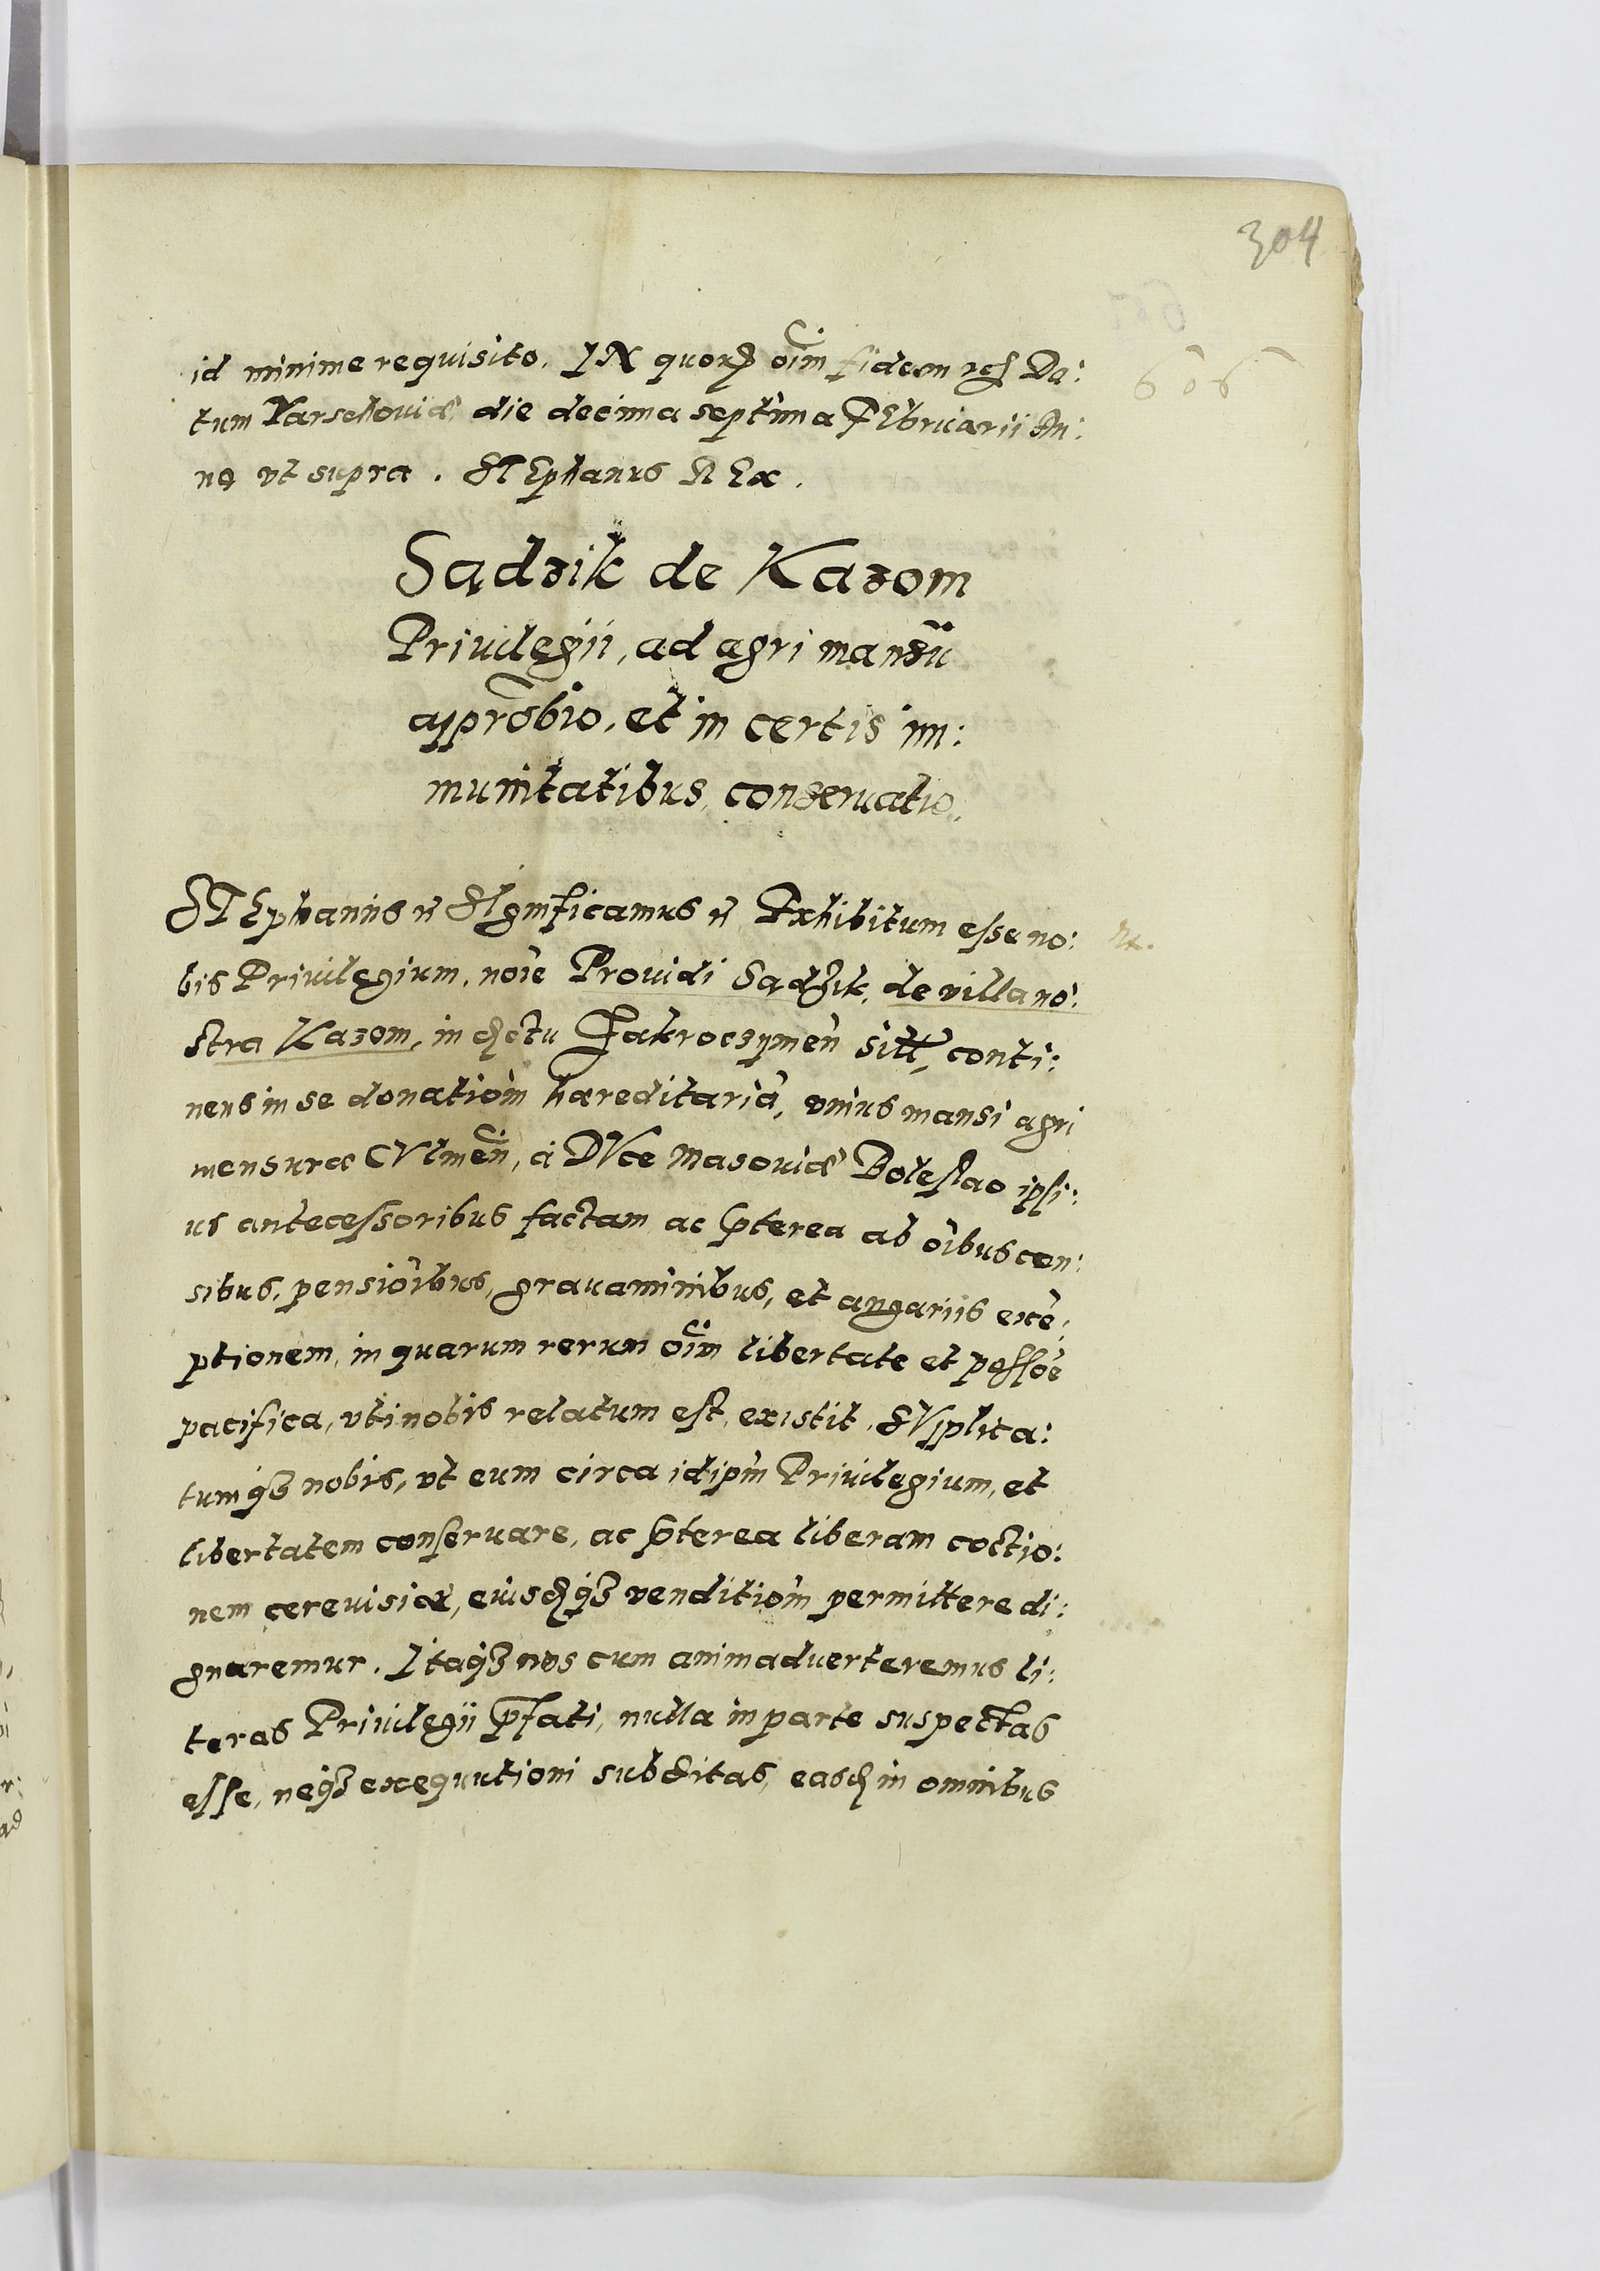 304
606
id minime requisito. IN quorꝝ oīm fidem rcꝭ Da:
tum Varschouiæ die decima septima FEbruarii An:
no vt supra. STEphanus REx.
Sądzik de Kazom
Priuilegii, ad agri mansū
approbio, et in certis im:
munitatibus conseruatio.
STEphanus SIgnificamus Exhibitum esse no:
bis Priuilegium, noīe Prouidi Sądzik, de villa no:
stra Kazom, in Zakroczymeñ conti:
nens in se donatiom̄ hæreditariā, vnius mansi agri
mensuræ CVlmeñ, à DVce Masouiæ Boleslao ipsi:
us antecessoribus factam ac p̄terea ab oībus cen:
sibus, pensioībus, grauaminibus, et angariis exē:
ptionem, in quarum rerum oīm libertate et possoē
pacifica, vti nobis relatum est, existit. SVpplica:
tumqȝ nobis, vt eum circa idipm̄ Priuilegium, et
libertatem conseruare, ac p̄terea liberam coctio:
nem cereuisiæ, eiusdqȝ venditiom̄ permittere di:
gnaremur. Itaqȝ nos cum animaduerteremus li:
teras Priuilegii p̄fati, nulla in parte suspectas
esse, neqȝ exequutioni subditas, easd in omnibus